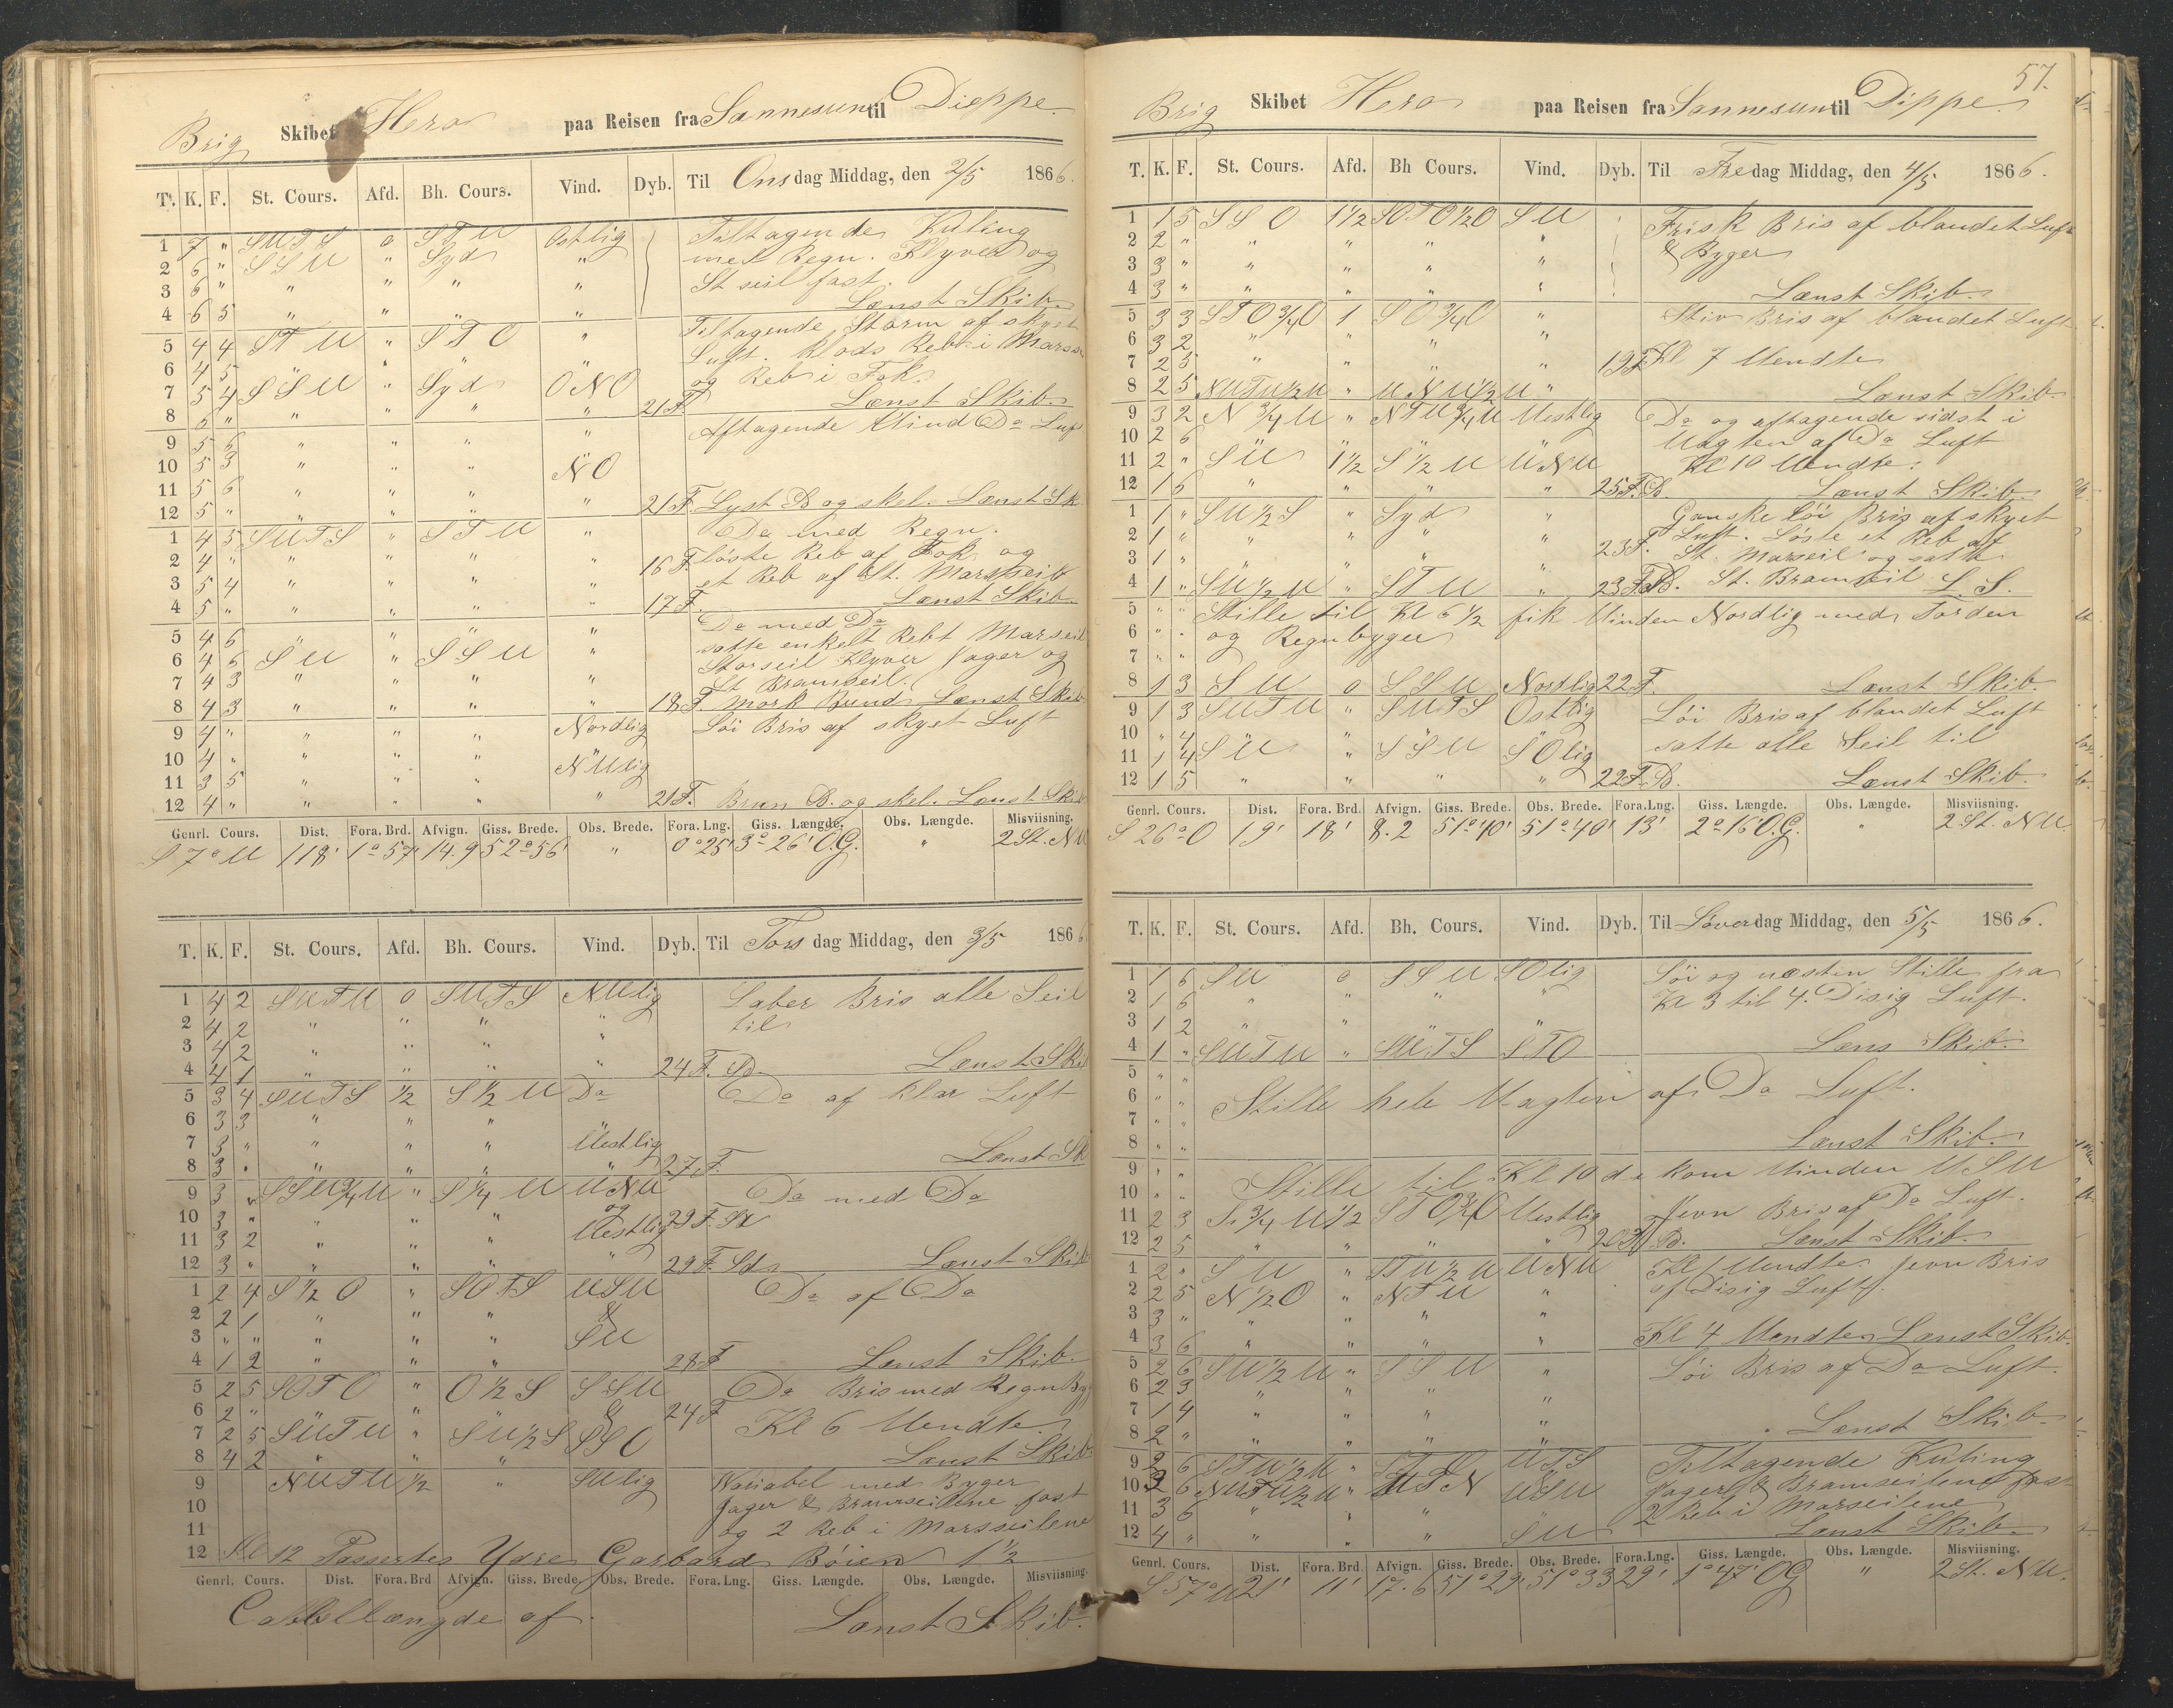 Brig Skibet Hero paa Reisen fra Sannesun til Dieppe
T. K. F. St. Cours. Afd. Bh. Cours. Vind. Dyb. Til Onsdag Middag, den 2/5 1866.
1 7 " SUTS 0 STU Ostlig Tiltagende Kuling
2 6 " SSU " Syd " med Regn. Klyver og
3 6 " " " " " St seil fast
4 6 5 " " " " Lænst Skib
5 4 4 STU " STO " Tiltagende Storm af skyet
6 4 5 " " " " Luft. Klods Reb i Marss
7 5 4 SSU " Syd ONO og Reb i Fok.
8 6 " " " " " 21 F Lænst Skib
9 5 6 " " " " Aftagende Vind Do Luf
10 5 3 " " " NO
11 5 6 " " " "
12 5 " " " " " 21 F. Lyst B og skel. Lænst Sk
1 4 5 SUTS " STU " Do med Regn.
2 4 " " " " " 16 F løste Reb af Fok og
3 5 4 " " " " et Reb af St. Marsseil
4 5 " " " " " 17 F. Lænst Skib
5 4 6 " " " " Do med Do
6 4 6 SU " SSU " satte enkelt Rebt Marseil
7 4 3 " " " " Storseil Klyver Jager og
St Bramseil.
8 4 3 " " " " 18 F. Mork Bund Lænst Skib
9 4 " " " " Nordlig Löi Bris af skyet Luft
10 4 " " " " NUlig
11 3 5 " " " "
12 4 " " " " " 21 F. Brun B. og skel. Lænst Skib
Genrl. Cours. Dist. Fora. Brd. Afvign. Giss. Brede. Obs. Brede. Fora. Lng. Giss. Længde. Obs. Længde. Misviisning.
S 7° U 118' 1° 57' 14.9 52° 56' " 0° 25' 3° 26' O.G. " 2 St. NU
T. K. F. St. Cours. Afd. Bh. Cours. Vind. Dyb. Til Torsdag Middag, den 3/5 1866
1 4 2 SUTU 0 SUTS NUlig Laber Bris alle Seil
2 4 2 " " " " til
3 4 2 " " " "
4 4 1 " " " " 24 F. Sd Lænst Skib
5 3 4 SUTS 1/2 S 1/2 U Do Do af klar Luft
6 3 3 " " "
7 3 " " " " Uestlig
8 3 " " " " " 27 F. Lænst Sk
9 3 " SSU 3/4 U " S 1/4 U UNU Do med Do
10 3 " " " " og 29 F. Sd
11 3 2 " " " Uestlig
12 3 " " " " " 29 F. Sd Lænst Skib
1 2 4 S 1/2 O " SOTS USU Do af Do
2 2 1 " " " &
3 " " " " " SU
4 1 2 " " " 28 F Lænst Skib
5 2 5 SOTO " O 1/2 S SSU Do Bris med Regn Byg
6 2 " " " & 24 F
7 2 5 SUTU " SU 1/2 S SSO Kl 6 Uendte
8 4 2 " " " Lænst Skib
9 NUTU 1/2 " SUlig Variabel med Byger
10 Jager & Bramseilene fast
11 og 2 Reb i Marsseilene
12 Kl 12 Passertes Ydre Garbard Böien 1 1/2
Genrl. Cours. Dist. Fora. Brd Afvign. Giss. Brede. Obs. Brede. Fora. Lng. Giss. Længde. Obs. Længde. Misviisning.
Cabellængde af. Lænst Skib.
57.
Brig Skibet Hero paa Reisen fra Sannesun til Dippe
T. K. F. St. Cours. Afd. Bh Cours. Vind. Dyb. Til Fredag Middag, den 4/5 1866.
1 1 5 SSO 1 1/2 SOTO 1/2 O SU Frisk Bris af blandet Luft
2 2 " " " " " & Byger
3 3 " " " " "
4 3 " " " " " Lænst Skib
5 3 3 STO 3/4 O 1 SO 3/4 O " Stiv Bris af blandet Luft
6 3 2 " " "
7 2 5 " " " " 19 F. Kl 7 Uendte
8 2 5 NUTU 1/2 U " UNU 1/2 U " Lænst Skib
9 3 2 N 3/4 U " NTU 3/4 U Uestlig Do og aftagende sidst i
10 2 6 Uagten af Do Luft
11 2 " SU 1 1/2 S 1/2 U UNU Kl 10 Uendte.
12 1 6 " " " " 25 F. B. Lænst Skib
1 1 " SU 1/2 S " Syd " Ganske löi Bris af skyet
2 1 " " " " " Luft. Löste et Reb af
3 1 " " " " " 23 F. St. Marseil og satte
4 1 " SU 1/2 U " STU " 23 F. B. St. Bramseil L. S.
5 " " Stille til Kl 6 1/2 fik Uinden Nordlig med Torden
6 " " og Regnbyger
7 " "
8 1 3 SU 0 SSU Nordlig 22 F. Lænst Skib
9 1 3 SUTU " SUTS Ostlig Löi Bris af blandet Luft
10 " 4 satte alle Seil til
11 1 4 SU " SSU SOlig
12 1 5 " " " " 22 F. B. Lænst Skib
Genrl. Cours. Dist. Fora. Brd. Afvign. Giss. Brede. Obs. Brede. Fora. Lng. Giss. Længde. Obs. Længde. Misviisning.
S 26° O 19' 18' 8.2 51° 40' 51° 40' 13' 2° 16' O.G. " 2 St. NU.
T. K. F. St. Cours. Afd. Bh. Cours. Vind. Dyb. Til Löverdag Middag, den 5/5 1866.
1 1 6 SU 0 SSU SOlig Löi og næsten Stille fra
2 1 6 " " " " Kl 3 til 4. Disig Luft.
3 1 2 " " " "
4 1 " SUTU " SUTS STO Læns Skib
5 " "
6 " " Stille hele Uagten af Do Luft.
7 " "
8 " " Lænst Skib
9 " " Stille til Kl 10 da kom Uinden USU
10 " " Jevn Bris af Do Luft.
11 2 3 S 3/4 U 1/2 STO 3/4 O Uestlig
12 2 5 " " " " B. Lænst Skib
1 2 " SU " STU 1/2 U UNU Kl 1 Uendte. Jevn Bris
2 2 5 N 1/2 O " NTU " af Disig Luft.
3 3 " " " " "
4 3 6 " " " " Kl 4 Uendte Lænst Skib
5 2 6 SU 1/2 U " SSU " Löi Bris af Do Luft
6 2 3 " " " "
7 1 4 " " " "
8 2 " " " " " Lænst Skib
9 2 6 STU 1/2 U " UTS Tiltagende Kuling
10 3 6 NUTU 1/2 U " UTN USU Jager & Bramseilene fast
11 3 6 " " " 2 Reb i Marseilene
12 4 " " " " SU Lænst Skib
Genrl. Cours. Dist. Fora. Brd Afvign. Giss. Brede. Obs. Brede. Fora. Lng. Giss. Længde. Obs. Længde. Misviisning.
S 57° U 21' 11' 17.6 51° 29' 51° 33 29' 1° 47' OG " 2 St. NU.